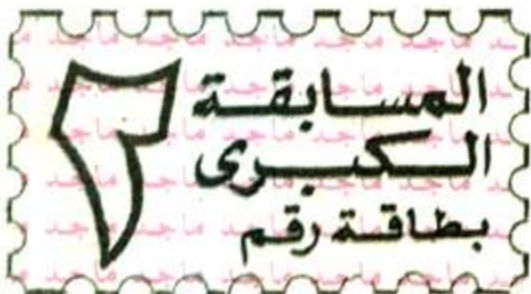 المسابقة
الكبرى
بطاقة رقم
٢
ماجد ماجد ماجد ماجد ماجد